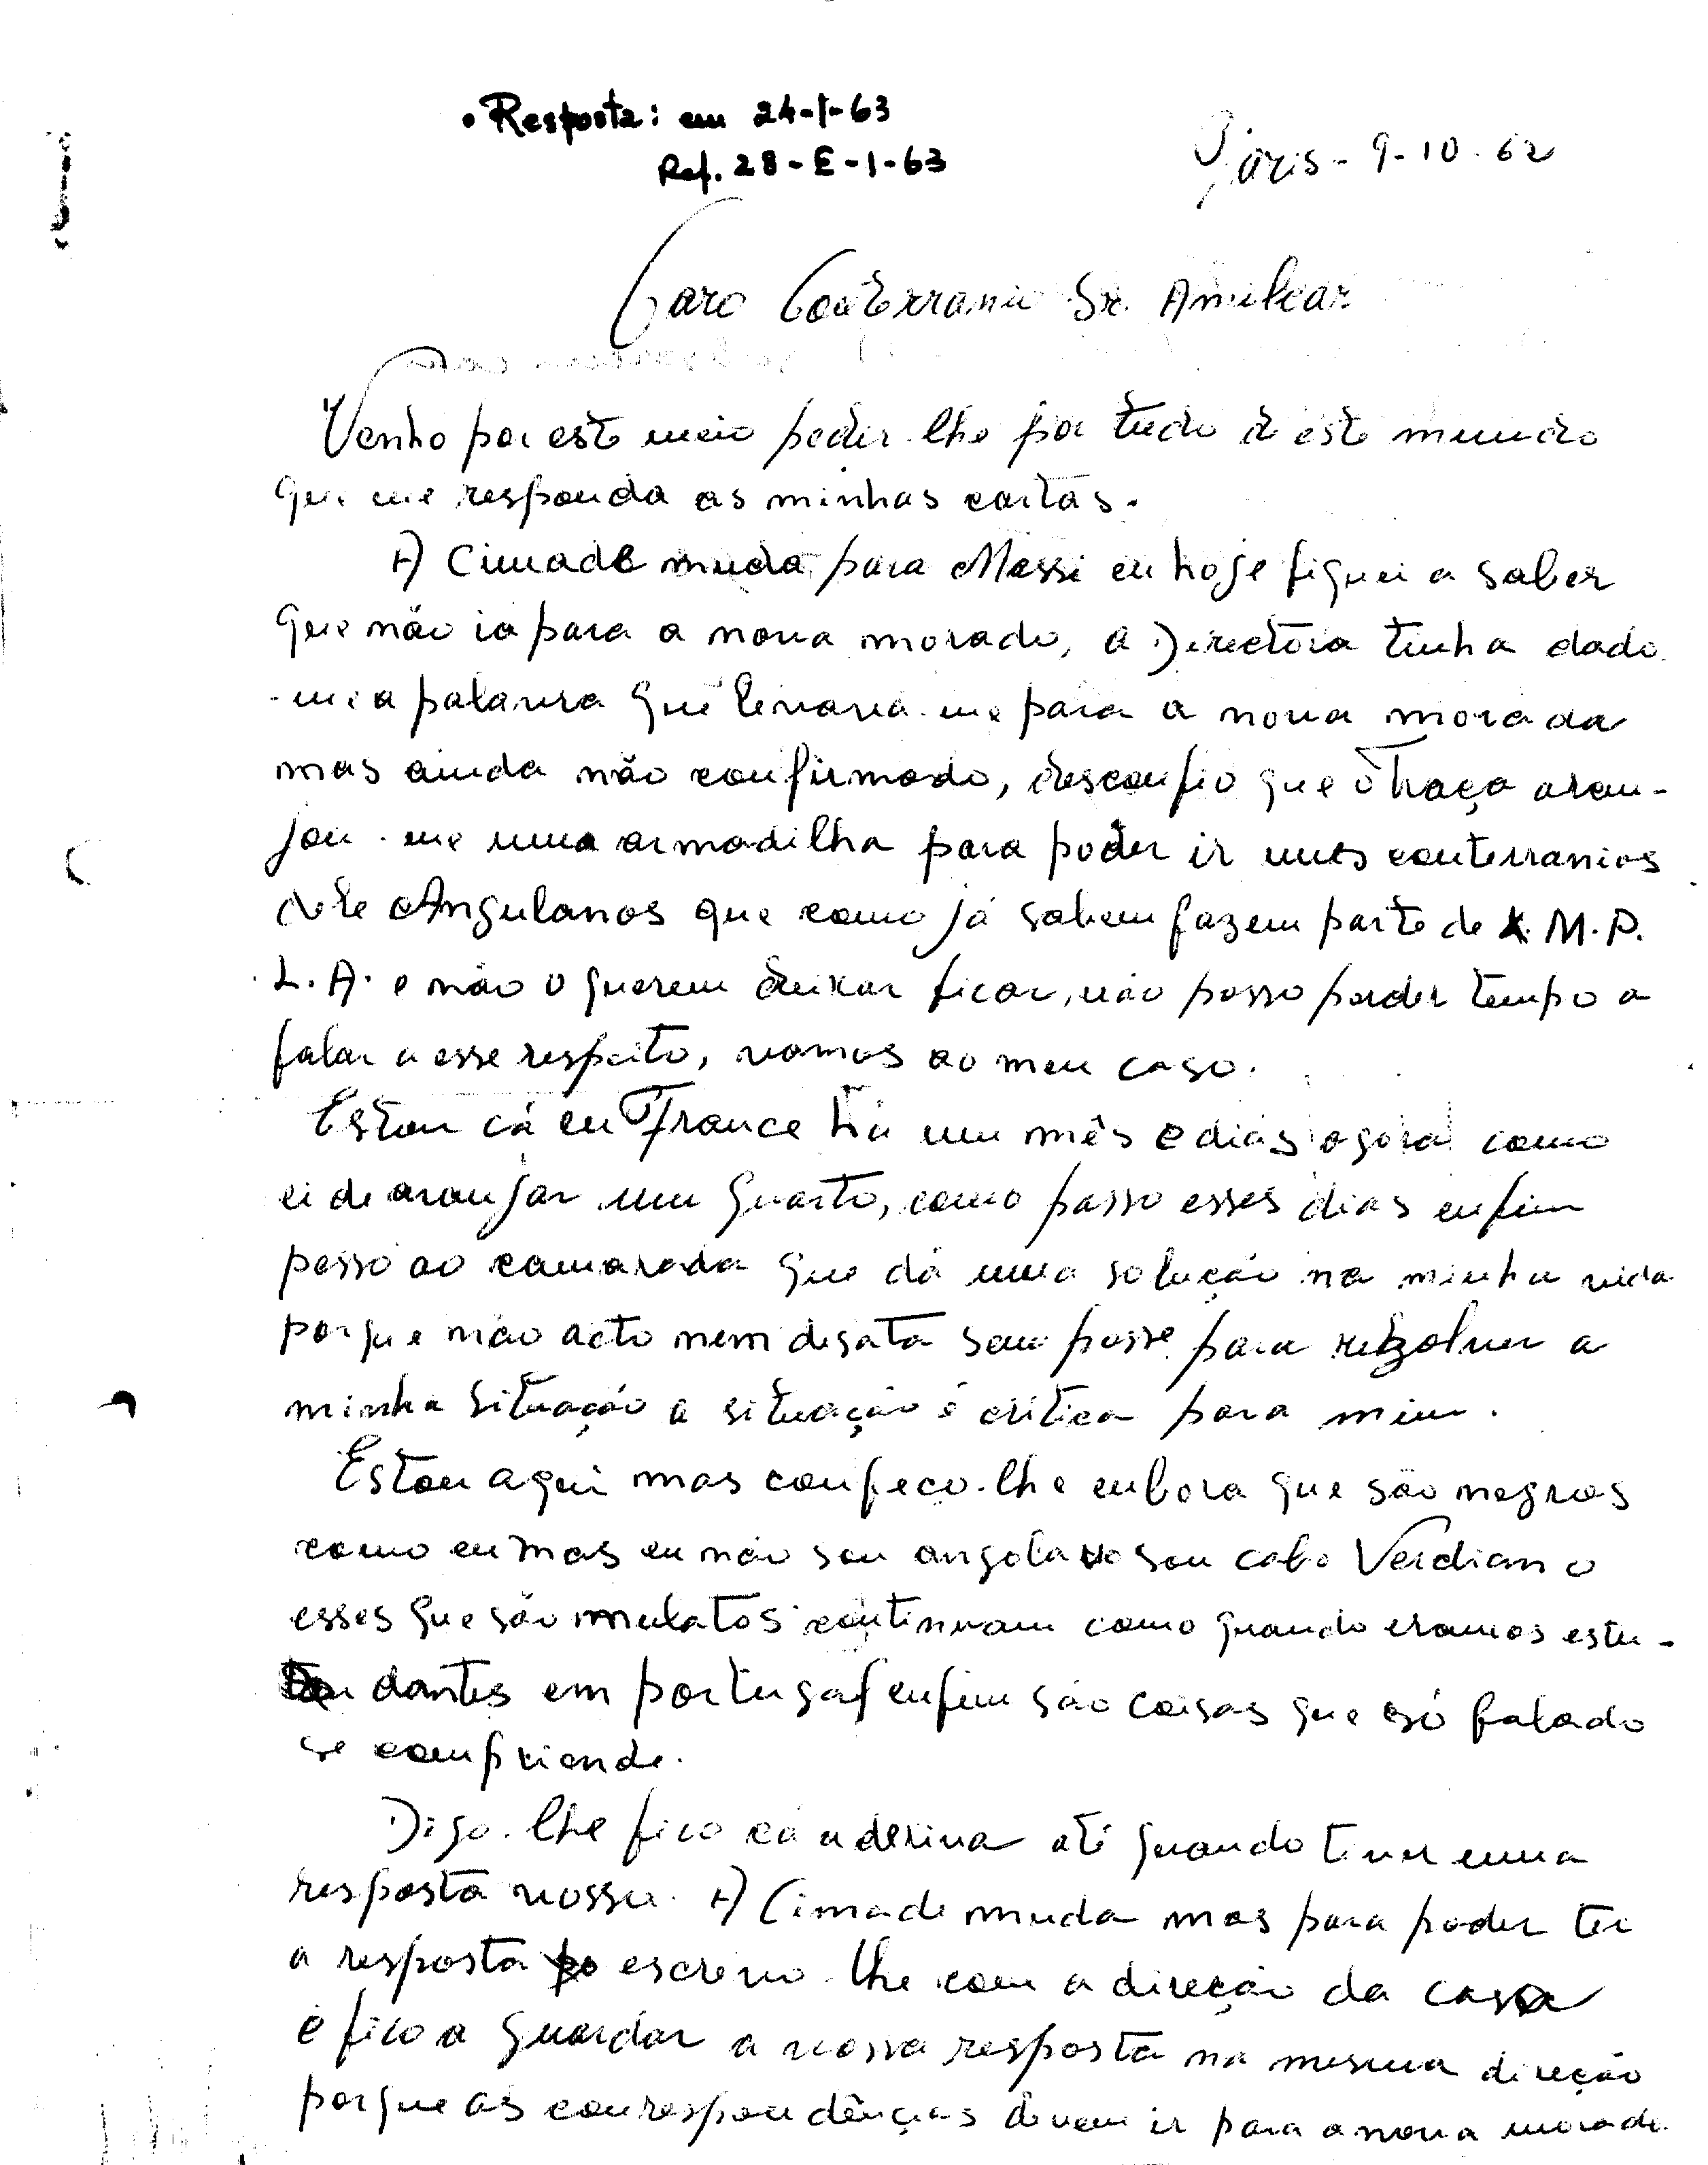 • Resposta: em 24-1-63
Ref. 28-E-1-63
Paris - 9-10-62
Caro Conterranio Sr. Amilcar
Venho por este meio pedir-lhe por tudo d este mundo
que me responda as minhas cartas.
A Cimade muda para Massi eu hoje fiquei a saber
que não ia para a nova morada, a Directora tinha dado
-me a palavra que levava-me para a nova morada
mas ainda não confirmado, desconfio que o Graça aran-
jou-me uma armadilha para poder ir uns conterranios
dele Angulanos que como já sabem fazem parte de M.P.
L.A. e não o querem deixar ficar, não posso perder tempo a
falar a esse respeito, vamos ao meu caso.
Estou cá en France há um mês e dias agora como
ei de aranjar um quarto, como passo esses dias enfim
pesso ao camarada que dá uma solução na minha vida
porque não acto nem desata sem posse para resolver a
minha situação a situação é critica para mim.
Estou aqui mas confeço-lhe enbora que são negros
como eu mas eu não sou angolano sou cabo Verdiano
esses que são mulatos continuam como quando eramos estu-
dantes em portugal enfim são coisas que só falado
se compriende.
Digo-lhe fico cá a deriva até quando tiver uma
resposta vossa. A Cimade muda mas para poder ter
a resposta escrevo-lhe com a direção da casa
e fico a guardar a vossa resposta na mesma direção
porque as correspondênçias devem ir para a nova morada